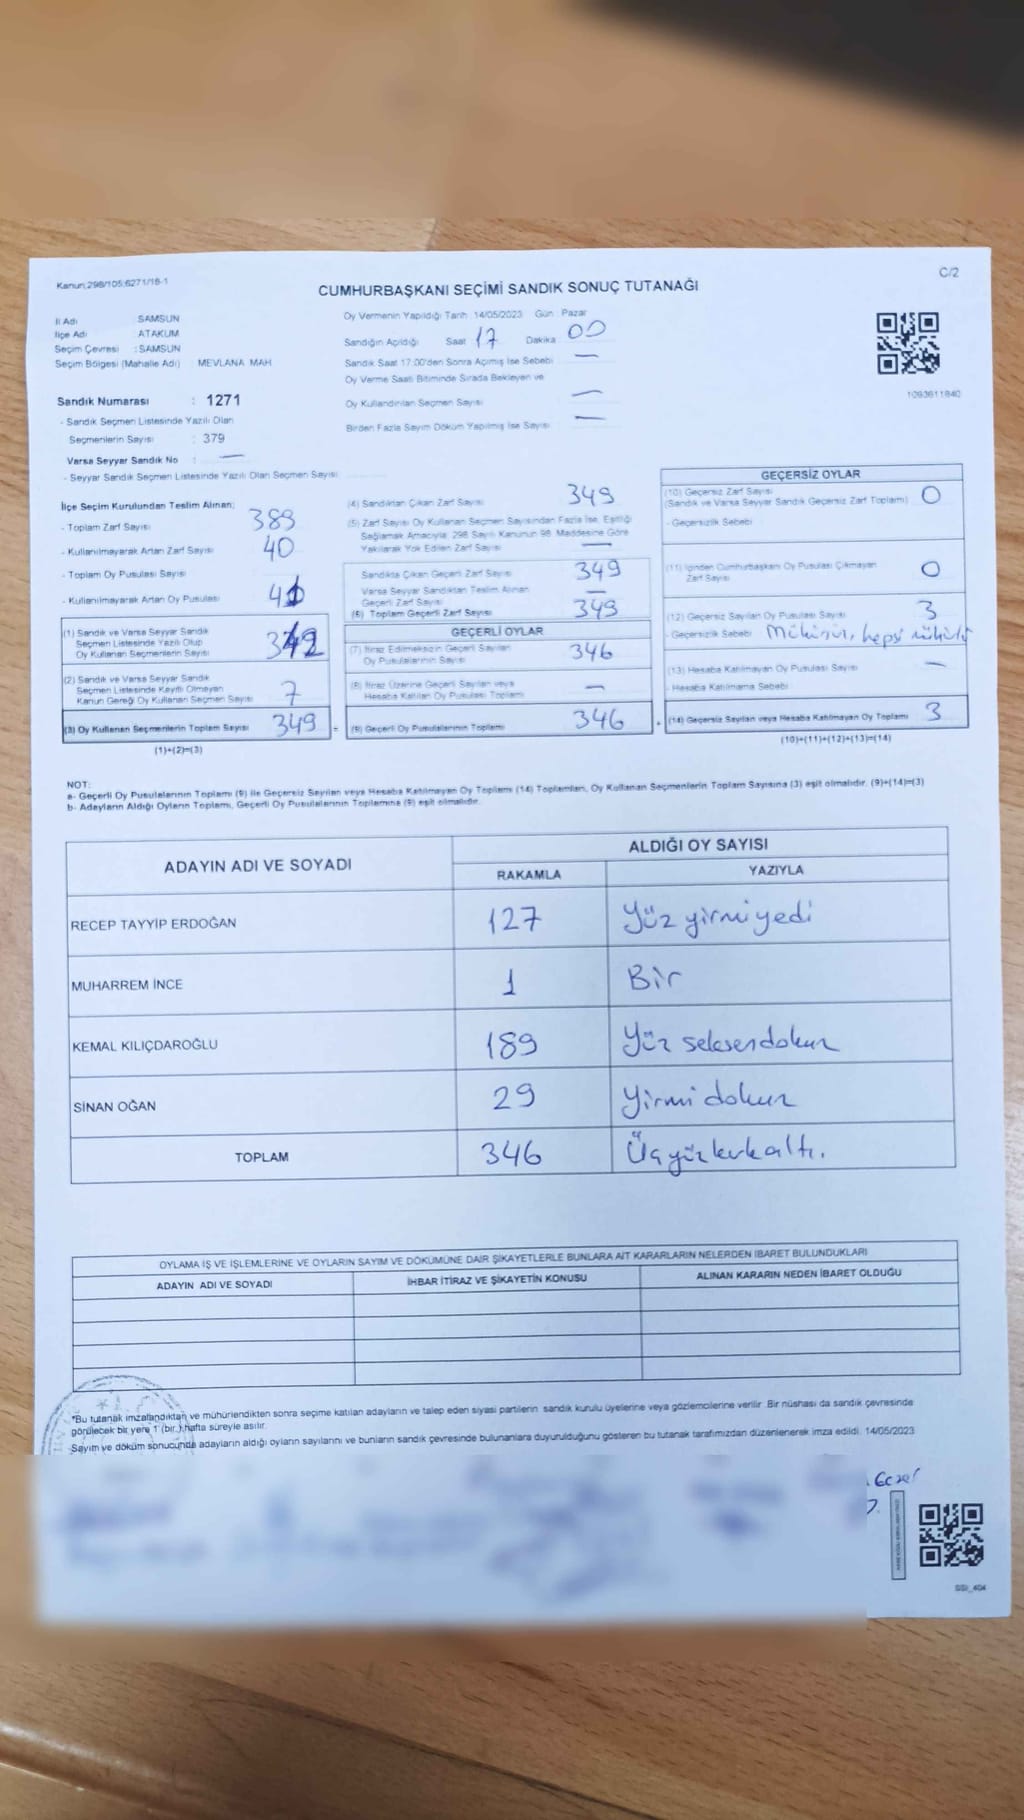 Kanun;298/105;6271/18-1
C/2
CUMHURBAŞKANI SEÇİMİ SANDIK SONUÇ TUTANAĞI
İl Adı SAMSUN
İlçe Adı : ATAKUM
Seçim Çevresi : SAMSUN
Seçim Bölgesi (Mahalle Adı) : MEVLANA MAH
Sandık Numarası : 1271
- Sandık Seçmen Listesinde Yazılı Olan
Seçmenlerin Sayısı : 379
Varsa Seyyar Sandık No : —
- Seyyar Sandık Seçmen Listesinde Yazılı Olan Seçmen Sayısı
Oy Vermenin Yapıldığı Tarih :14/05/2023 Gün : Pazar
Sandığın Açıldığı Saat 17 Dakika 00
Sandık Saat 17:00'den Sonra Açılmış İse Sebebi —
Oy Verme Saati Bitiminde Sırada Bekleyen ve
Oy Kullandırılan Seçmen Sayısı —
Birden Fazla Sayım Döküm Yapılmış İse Sayısı —
1093611840
İlçe Seçim Kurulundan Teslim Alınan;
- Toplam Zarf Sayısı 389
- Kullanılmayarak Artan Zarf Sayısı 40
- Toplam Oy Pusulası Sayısı
- Kullanılmayarak Artan Oy Pusulası
(1) Sandık ve Varsa Seyyar Sandık
Seçmen Listesinde Yazılı Olup
Oy Kullanan Seçmenlerin Sayısı 342
(2) Sandık ve Varsa Seyyar Sandık
Seçmen Listesinde Kayıtlı Olmayan
Kanun Gereği Oy Kullanan Seçmen Sayısı 7
(3) Oy Kullanan Seçmenlerin Toplam Sayısı 349 =
(1)+(2)=(3)
(4) Sandıktan Çıkan Zarf Sayısı 349
(5) Zarf Sayısı Oy Kullanan Seçmen Sayısından Fazla İse, Eşitliği
Sağlamak Amacıyla 298 Sayılı Kanunun 98. Maddesine Göre
Yakılarak Yok Edilen Zarf Sayısı —
Sandıkta Çıkan Geçerli Zarf Sayısı 349
Varsa Seyyar Sandıktan Teslim Alınan
Geçerli Zarf Sayısı —
(6) Toplam Geçerli Zarf Sayısı 349
GEÇERLİ OYLAR
(7) İtiraz Edilmeksizin Geçerli Sayılan
Oy Pusulalarının Sayısı 346
(8) İtiraz Üzerine Geçerli Sayılan veya
Hesaba Katılan Oy Pusulası Toplamı —
(9) Geçerli Oy Pusulalarının Toplamı 346 +
GEÇERSİZ OYLAR
(10) Geçersiz Zarf Sayısı
(Sandık ve Varsa Seyyar Sandık Geçersiz Zarf Toplamı) 0
- Geçersizlik Sebebi
(11) İçinden Cumhurbaşkanı Oy Pusulası Çıkmayan
Zarf Sayısı 0
(12) Geçersiz Sayılan Oy Pusulası Sayısı 3
- Geçersizlik Sebebi hepsi
(13) Hesaba Katılmayan Oy Pusulası Sayısı —
- Hesaba Katılmama Sebebi
(14) Geçersiz Sayılan veya Hesaba Katılmayan Oy Toplamı 3
(10)+(11)+(12)+(13)=(14)
NOT:
a- Geçerli Oy Pusulalarının Toplamı (9) ile Geçersiz Sayılan veya Hesaba Katılmayan Oy Toplamı (14) Toplamları, Oy Kullanan Seçmenlerin Toplam Sayısına (3) eşit olmalıdır. (9)+(14)=(3)
b- Adayların Aldığı Oyların Toplamı, Geçerli Oy Pusulalarının Toplamına (9) eşit olmalıdır.
ADAYIN ADI VE SOYADI
ALDIĞI OY SAYISI
RAKAMLA YAZIYLA
RECEP TAYYİP ERDOĞAN 127 Yüz yirmi yedi
MUHARREM İNCE 1 Bir
KEMAL KILIÇDAROĞLU 189 Yüz seksendokuz
SİNAN OĞAN 29 Yirmi dokuz
TOPLAM 346 Üçyüzkırkaltı.
OYLAMA İŞ VE İŞLEMLERİNE VE OYLARIN SAYIM VE DÖKÜMÜNE DAİR ŞİKAYETLERLE BUNLARA AİT KARARLARIN NELERDEN İBARET BULUNDUKLARI
ADAYIN ADI VE SOYADI İHBAR İTİRAZ VE ŞİKAYETİN KONUSU ALINAN KARARIN NEDEN İBARET OLDUĞU
*Bu tutanak imzalandıktan ve mühürlendikten sonra seçime katılan adayların ve talep eden siyasi partilerin sandık kurulu üyelerine veya gözlemcilerine verilir. Bir nüshası da sandık çevresinde
görülecek bir yere 1 (bir) hafta süreyle asılır.
Sayım ve döküm sonucunda adayların aldığı oyların sayılarını ve bunların sandık çevresinde bulunanlara duyurulduğunu gösteren bu tutanak tarafımızdan düzenlenerek imza edildi. 14/05/2023
SSI_404